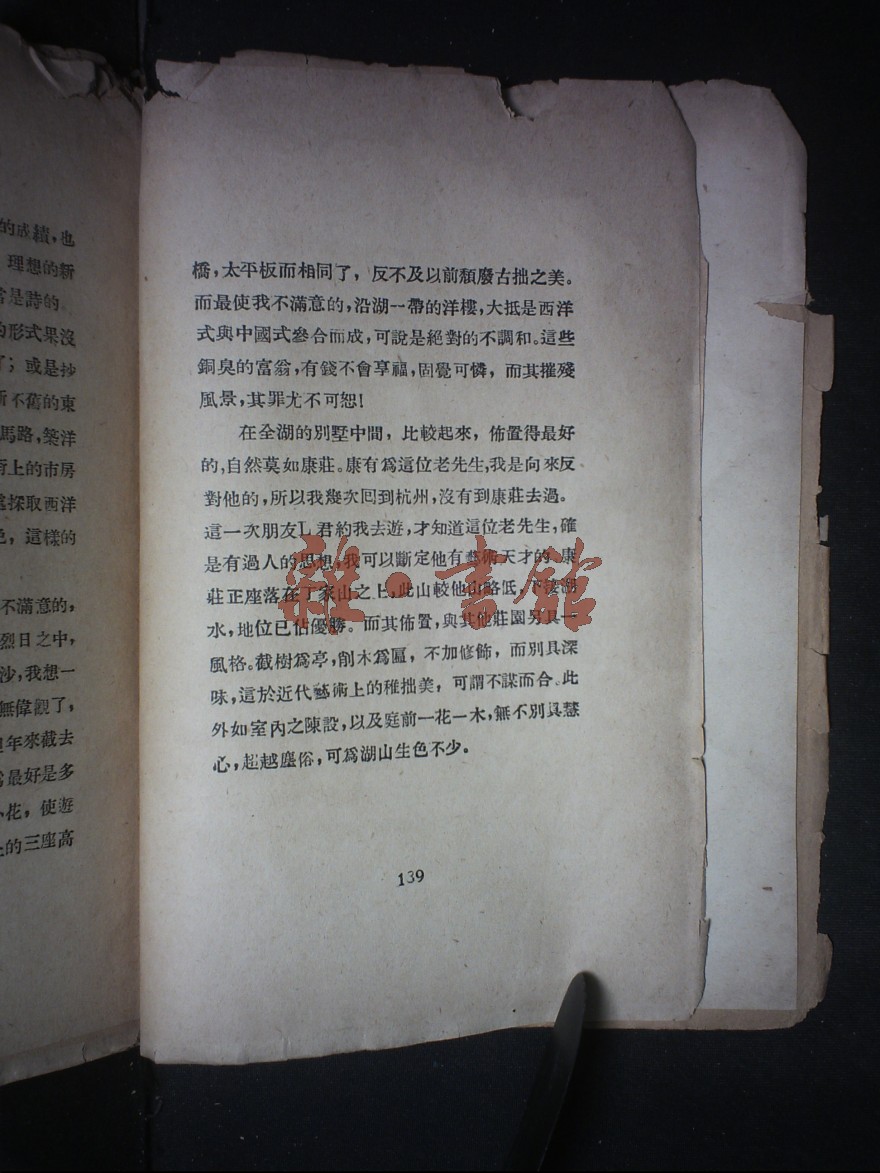 的成績，也
理想的新
常是詩的。
的形式果沒
了；或是抄
新不舊的東
馬路，築洋
術上的市房
採取西洋
色，這樣的
不滿意的，
烈日之中，
沙，我想一
無偉觀了，
年來截去
最好是多
花，使遊
的三座高
橋，太平板而相同了，反不及以前頹廢古拙之美。
而最使我不滿意的，沿湖一帶的洋樓，大抵是西洋
式與中國式參合而成，可說是絕對的不調和。這些
銅臭的富翁，有錢不會享福，固覺可憐，而其摧殘
風景，其罪尤不可恕！
在全湖的別墅中間，比較起來，佈置得最好
的，自然莫如康莊。康有爲這位老先生，我是向來反
對他的，所以我幾次回到杭州，沒有到康莊去過。
這一次朋友L君約我去遊，才知道這位老先生，確
是有過人的思想，我可以斷定他有藝術天才的。康
莊正座落在丁家山之上，此山較他山略低，下淩湖
水，地位已佔優勝。而其佈置，與其他莊園另具一
風格。截樹爲亭，削木爲匾，不加修飾，而別具深
味，這於近代藝術上的稚拙美，可謂不謀而合。此
外如室內之陳設，以及庭前一花一木，無不別具慧
心，超越塵俗，可爲湖山生色不少。
139
雜·書館